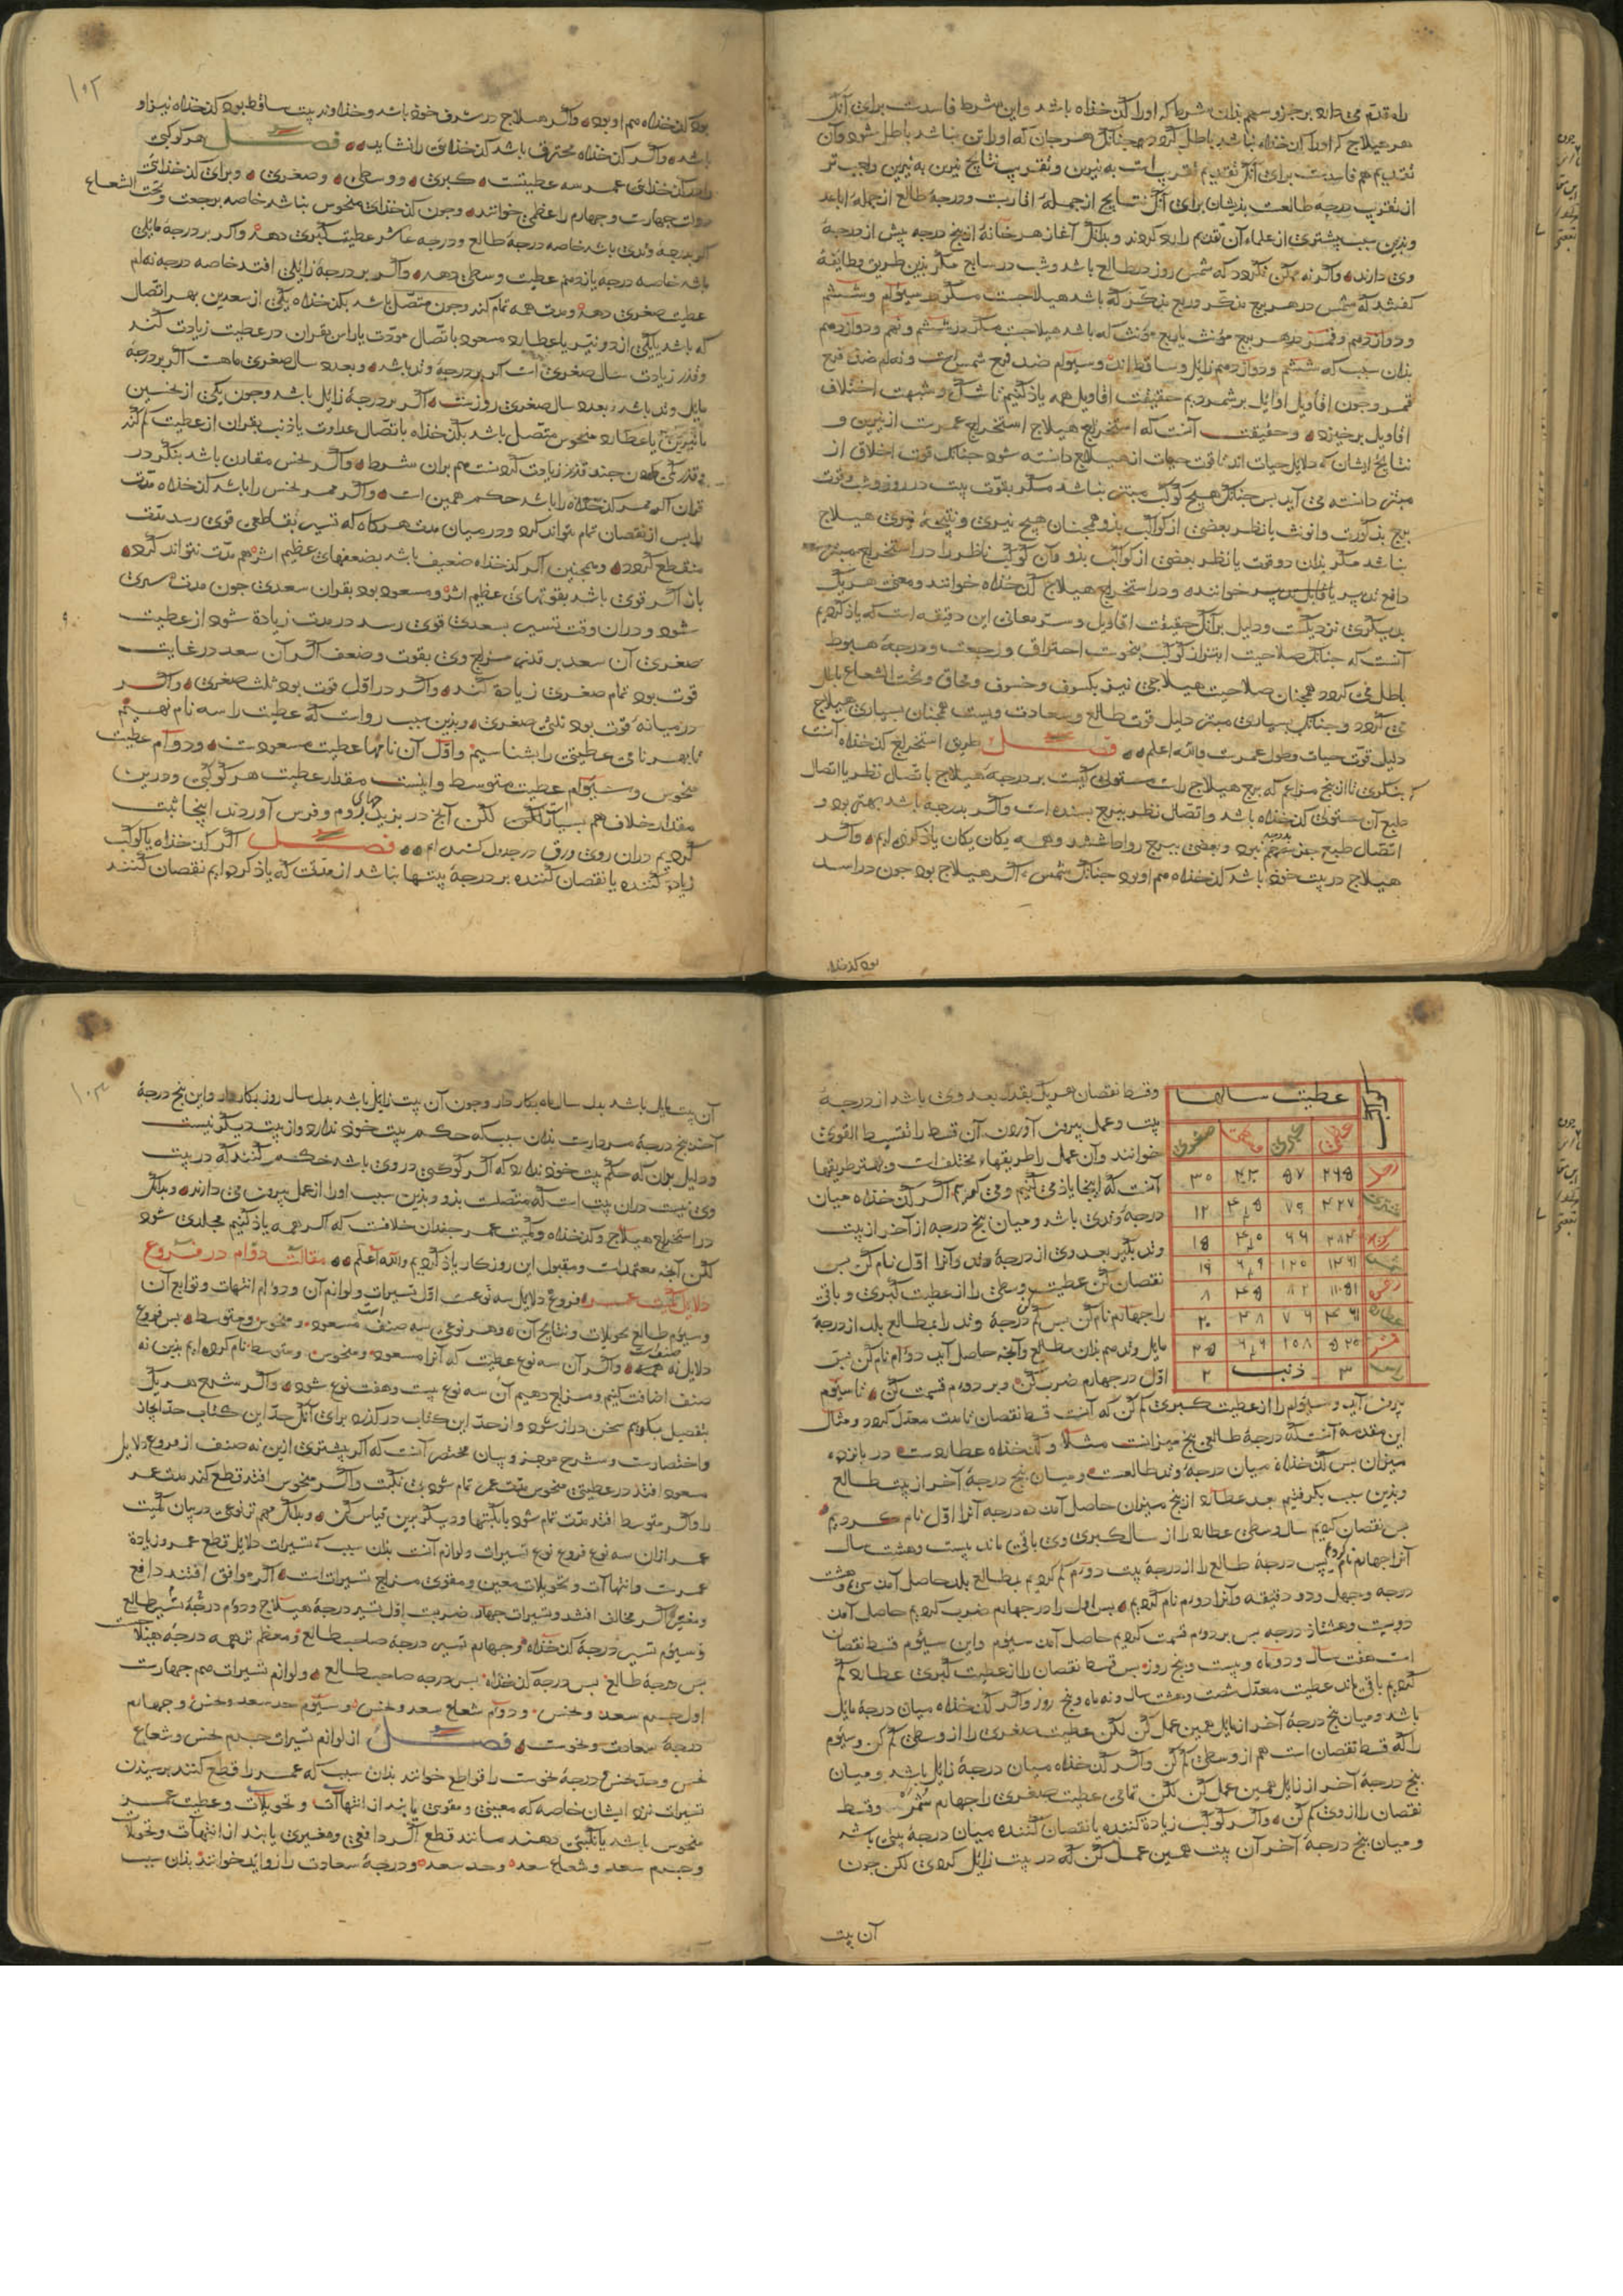 را مقدم می دارد بر جزو و سهم بدان شرط که او را کدخذاه باشد و این شرط فاسدست برای آنک
هر هیلاج که او را کدخذاه نباشد باطل کردد همچنانک هر جان که او را تن نباشد باطل شود و آن
تقدیم هم فاسدست برای آنک تقدیم تقرب است به نیرین و تقرب نتایج نیرین به نیرین واجب تر
از تقرب درجه طالعست بذیشان برای آنک نتایج از جملهٔ اقاربست و درجهٔ طالع از جملهٔ اباعد
و بدین سبب بیشتری از علماء آن تقدیم را رد کردند و بدانک آغاز هر خانهٔ از پنج درجه پیش از درجهٔ
وی دارند و اگر نه ممکن نکردد که شمس روز در طالع باشد و شب در سابع مکر بدین طریق و طایفهٔ
کفتند که شمس در هر برج مذکر و ربع مذکر که باشد هیلاجست مکر در سیوم و ششم
و دوازدهم و قمر در هر برج مؤنث یا ربع مؤنث که باشد هیلاجست مکر در ششم و نهم و دوازدهم
بدان سبب که ششم و دوازدهم زایل و ساقط اند و سیوم ضد فرح شمس است و نهم ضد فرح
قمر و چون اقاویل اوایل بر شمردیم حقیقت اقاویل همه یاد کنیم تا شک و شبهت اختلاف
اقاویل برخیزد و حقیقت آنست که استخراج هیلاج استخراج عمرست از نیرین و
نتایج ایشان که دلایل حیات اند تا قوت حیات از هیلاج دانسته شود جنانک قوت اخلاق از
مبتز دانسته می آید بس جنانک هیچ کوکب مبتز نباشد مکر بقوت بیت در روز و شب و قوت
نباشد مکر بدان دو قوت یا نظر بعضی از کواکب بذو و آن کوکب ناظر را در استخراج مبتز
دافع تدبیر یا قابل تدبیر خوانند و در استخراج هیلاج کدخذاه خوانند و معنی هر یک
بدیکری نزدیکست و دلیل بر آنک حقیقت اقاویل و سر معانی این دقیقه است که یاذ کردیم
آنست که جنانک صلاحیت ابتزاز کوکب بنحوست احتراق و رجعت و درجهٔ هبوط
باطل می کردد همچنان صلاحیت هیلاجی نیز بکسوف و خسوف و محاق و تحت الشعاع باطل
می کردد و جنانک بسیاری مبتز دلیل قوت طالع و سعادت ویست همچنان بسیاری هیلاج
دلیل قوت حیات و طول عمرست والله اعلم فصل طریق استخراج کدخذاه آنست
که بنکری تا از پنج مزاعم که برج هیلاج راست مستولی کیست بر درجهٔ هیلاج باتصال نظر یا اتصال
طبع آن مستولی کدخذاه باشد و اتصال نظر ببرج بسنده است و اگر بدرجه باشد بهتر بود و
اتصال طبع جز بدرجه نبود و بعضی ببرج روا داشتند و همه یکان یکان یاذ کرده ایم و اگر
هیلاج در بیت خوذ باشد کدخذاه هم او بود جنانک شمس و اگر هیلاج بود چون در اسد
بود کدخذاه
۱۰۲
بود کدخذاه هم او بود و اگر هیلاج در شرف خوذ باشد و خداوند بیت ساقط بود کدخذاه نیز او
باشد و اگر کدخذاه محترق باشد کدخذایی را نشاید فصل هر کوکبی
را در کدخذائی عمر سه عطیتست کبری و وسطی و صغری و برای کدخذائی
دوات چهارست و چهارم را عظمی خوانند و چون کدخذای منحوس نباشد خاصه برجعت و تحت الشعاع
اگر بدرجهٔ وتدی باشد خاصه درجهٔ طالع و درجه عاشر عطیت کبری دهد و اگر بر درجهٔ مایلی
باشد خاصه درجه یازدهم عطیت وسطی دهد و اگر بر درجهٔ زایلی افتد خاصه درجه نهم
عطیت صغری دهد و مدت همه تمام کند و چون متصل باشد بکدخذاه یکی از سعدین بهر اتصال
که باشد یا یکی از دو نیر یا عطارد مسعود باتصال مودت یا راس بقران در عطیت زیادت کند
و قدر زیادت سال صغری است اگر بر درجهٔ وتد باشد و بعدد سال صغری ماهست اگر بر درجهٔ
مایل وتد باشد و بعدد سال صغری روزست اگر بر درجهٔ زایل باشد و چون یکی از نحسین
یا نیرین یا عطارد منحوس متصل باشد بکدخذاه باتصال عداوت یا ذنب بقران از عطیت کم کند
و قدر کم کردن چند قدر زیادت کردنست هم بران شرط و اگر نحس مقارن باشد بنکر در
قران اگر ممر کدخذاه را باشد حکم همین است و اگر ممر نحس را باشد کدخذاه مدت
را بس از نقصان تمام نتواند کرد و در میان مدت هرکاه که تسییر بقاطعی قوی رسد مدت
منقطع کردد و همچنین اگر کدخذاه ضعیف باشد بضعفهای عظیم اثر هم مدت نتواند کرد
باز اگر قوی باشد بقوتهای عظیم اثر و مسعود بود بقران سعدی چون مدت سپری
شود و دران وقت تسییر بسعدی قوی رسد در مدت زیادة شود از عطیت
صغری آن سعد بر قدر مزاج وی بقوت و ضعف اگر آن سعد در غایت
قوت بود تمام صغری زیادة کند و اگر در اقل قوت بود ثلث صغری و اگر
در میانه قوت بود ثلثی صغری و بدین سبب رواست که عطیت را سه نام نهیم
تا بهر نامی عطیتی را بشناسیم و اول آن نامها عطیت مسعودست و دوم عطیت
منحوس و سیوم عطیت متوسط و اینست مقدار عطیت هر کوکبی و درین
مقدار خلاف هم بسیارست لکن آنچ در بزیدج روم و فرس آوردند اینجا ثبت
کردیم دران روی ورق در جدول کشیده ایم فصل اگر کدخذاه یا کوکب
زیادت کننده یا نقصان کننده بر درجهٔ بیتها نباشد از مدت که یاذ کرده ایم نقصان کنند
عطیت سالها
عظمی کبری وسطی صغری
زحل ۲۶۵ ۵۷ ۳۰
مشتری ۴۲۷ ۷۹ ۱۲
مریخ ۲۸۴ ۶۶ ۱۵
شمس ۱۴۶۱ ۱۲۰ ۱۹
زهره ۱۱۵۱ ۸۲ ۴۵ ۸
عطارد ۴۶۱ ۷۶ ۴۸ ۲۰
قمر ۵۲۰ ۱۰۸ ۲۵
راس ۳ ذنب ۲
و قسط نقصان هر یک بقدر بعد وی باشد از درجهٔ
بیت و عمل بیرون آوردن آن قسط را تقسیط القوی
خوانند و آن عمل را طریقهاء مختلف است و بهتر طریقها
آنست که اینجا یاذ می کنیم و می کوییم اگر کدخذاه میان
درجهٔ وتدی باشد و میان پنج درجه از آخر از بیت
وتد بکیر بعد وی از درجهٔ وتد و آنرا اول نام کن بس
نقصان کن عطیت وسطی را از عطیت کبری و باقی
را چهارم نام کن بس کم کن درجهٔ وتد را بمطالع بلد از درجهٔ
مایل وتد هم بدان مطالع و آنچه حاصل آید دوم نام کن بس
اول در چهارم ضرب کن و بر دوم قسمت کن تا سیوم
بیرون آید و سیوم را از عطیت کبری کم کن که آنست قسط نقصان تا مدت معدل کردد و مثال
این مقدمه آنست که درجهٔ طالع پنج میزانست مثلا و کدخذاه عطاردست در پانزده
میزان بس کدخذاه میان درجهٔ وتد طالعست و میان پنج درجهٔ آخر از بیت طالع
و بدین سبب بکرفتیم بعد عطارد از پنج میزان حاصل آمد ده درجه آنرا اول نام کردیم
بس نقصان کردیم سال وسطی عطارد را از سال کبری وی باقی ماند بیست و هشت سال
آنرا چهارم نام کردیم بس درجهٔ طالع را از درجهٔ بیت دوم کم کردیم بمطالع بلد حاصل آمد سی و هشت
درجه و چهل و دو دقیقه و آنرا دوم نام کردیم بس اول را در چهارم ضرب کردیم حاصل آمد
دویست و هشتاد درجه بس بر دوم قسمت کردیم حاصل آمد سیوم و این سیوم قسط نقصان
است هفت سال و دو ماه و بیست و پنج روز بس قسط نقصان را از عطیت کبری عطارد کم
کردیم باقی ماند عطیت معدل شصت و هشت سال و نه ماه و پنج روز و اگر کدخذاه میان درجهٔ مایل
باشد و میان پنج درجهٔ آخر از مایل همین عمل کن لکن عطیت صغری را از وسطی کم کن و سیوم
را که قسط نقصان است هم از وسطی کم کن و اگر کدخذاه میان درجهٔ زایل باشد و میان
پنج درجهٔ آخر از زایل همین عمل کن لکن تمامی عطیت صغری را چهارم شمر و قسط
نقصان را از وی کم کن و اگر کوکب زیادة کننده یا نقصان کننده میان درجهٔ بیتی باشد
و میان پنج درجهٔ آخر آن بیت همین عمل کن که در بیت زایل کردی لکن چون
آن بیت
۱۰۳
آن بیت مایل باشد بدل سال ماه بکار دار و چون آن بیت زایل باشد بدل سال روز بکار دار و این پنج درجهٔ
آخر پنج درجهٔ مردارست بدان سبب که حکم بیت خوذ ندارد و از بیت دیکر نیست
و دلیل بران که حکم بیت خوذ ندارد که اگر کوکبی در وی باشد حکم نکنند که در بیت
وی نیست دران بیت است که متصلست بذو و بدین سبب او را از عمل بیرون می دارند و بدانک
در استخراج هیلاج و کدخذاه و کمیت عمر چندان خلافست که اگر همه یاذ کنیم مجلدی شود
لکن آنچه معتمدست و مقبول این روزکار یاذ کردیم والله اعلم مقالت دوم در فروع
دلایل کمیت عمر فروع دلایل سه نوعست اول تسییرات و لوازم آن و دوم انتهات و توابع آن
و سیوم طالع تحویلات و نتایج آن و هر نوعی سه صنف است مسعود و منحوس و متوسط بس فروع
دلایل نه صنفست و اگر آن سه نوع عطیت که آنرا مسعود و منحوس و متوسط نام کرده ایم بدین نه
صنف اضافت کنیم و مزاج دهیم آن سه نوع بیست و هفت نوع شود و اگر شرح هر یک
بتفصیل بکوییم سخن دراز شود و از حد این کتاب در کذرد برای آنک حد این کتاب حد ایجاز
و اختصارست و شرح موجز و بیان مختصر آنست که اگر بیشتری ازین نه صنف از فروع دلایل
مسعود افتد در عطیتی منحوس مدت عمر تمام شود بی نکبت و اگر منحوس افتد قطع کند مدت عمر
را و اگر متوسط افتد مدت تمام شود با نکبتها و دیکر برین قیاس کن و بدانک مهم تر نوعی در بیان کمیت
عمر ازان سه نوع فروع نوع تسییرات و لوازم آنست بدان سبب که تسییرات دلایل قطع عمر و زیادة
عمرست و انتهاآت و تحویلات معین و مقوی مزاج تسییرات است اگر موافق افتند دافع
و مغیر اگر مخالف افتند و تسییرات چهار ضربست اول تسییر درجهٔ هیلاج و دوم درجهٔ تسییر طالع
و سیوم تسییر درجهٔ کدخذاه و چهارم تسییر درجهٔ صاحب طالع و معظم تر همه درجهٔ هیلاجست
بس درجهٔ طالع بس درجه کدخذاه بس درجه صاحب طالع و لوازم تسییرات هم چهارست
اول جرم سعد و نحس و دوم شعاع سعد و نحس و سیوم حد سعد و نحس و چهارم
درجهٔ سعادت و نحوست فصل از لوازم تسییرات جرم نحس و شعاع
نحس و حد نحس و درجهٔ نحوست را قواطع خوانند بدان سبب که عمر را قطع کنند برسیدن
تسییرات نزد ایشان خاصه که معینی و مقوی یابند از انتهاآت و تحویلات و عطیت عمر
منحوس باشد یا نکبتی دهند مانند قطع اگر دافعی و مغیری یابند از انتهاآت و تحویلات
و جرم سعد و شعاع سعد و حد سعد و درجهٔ سعادت را زواید خوانند بدان سبب